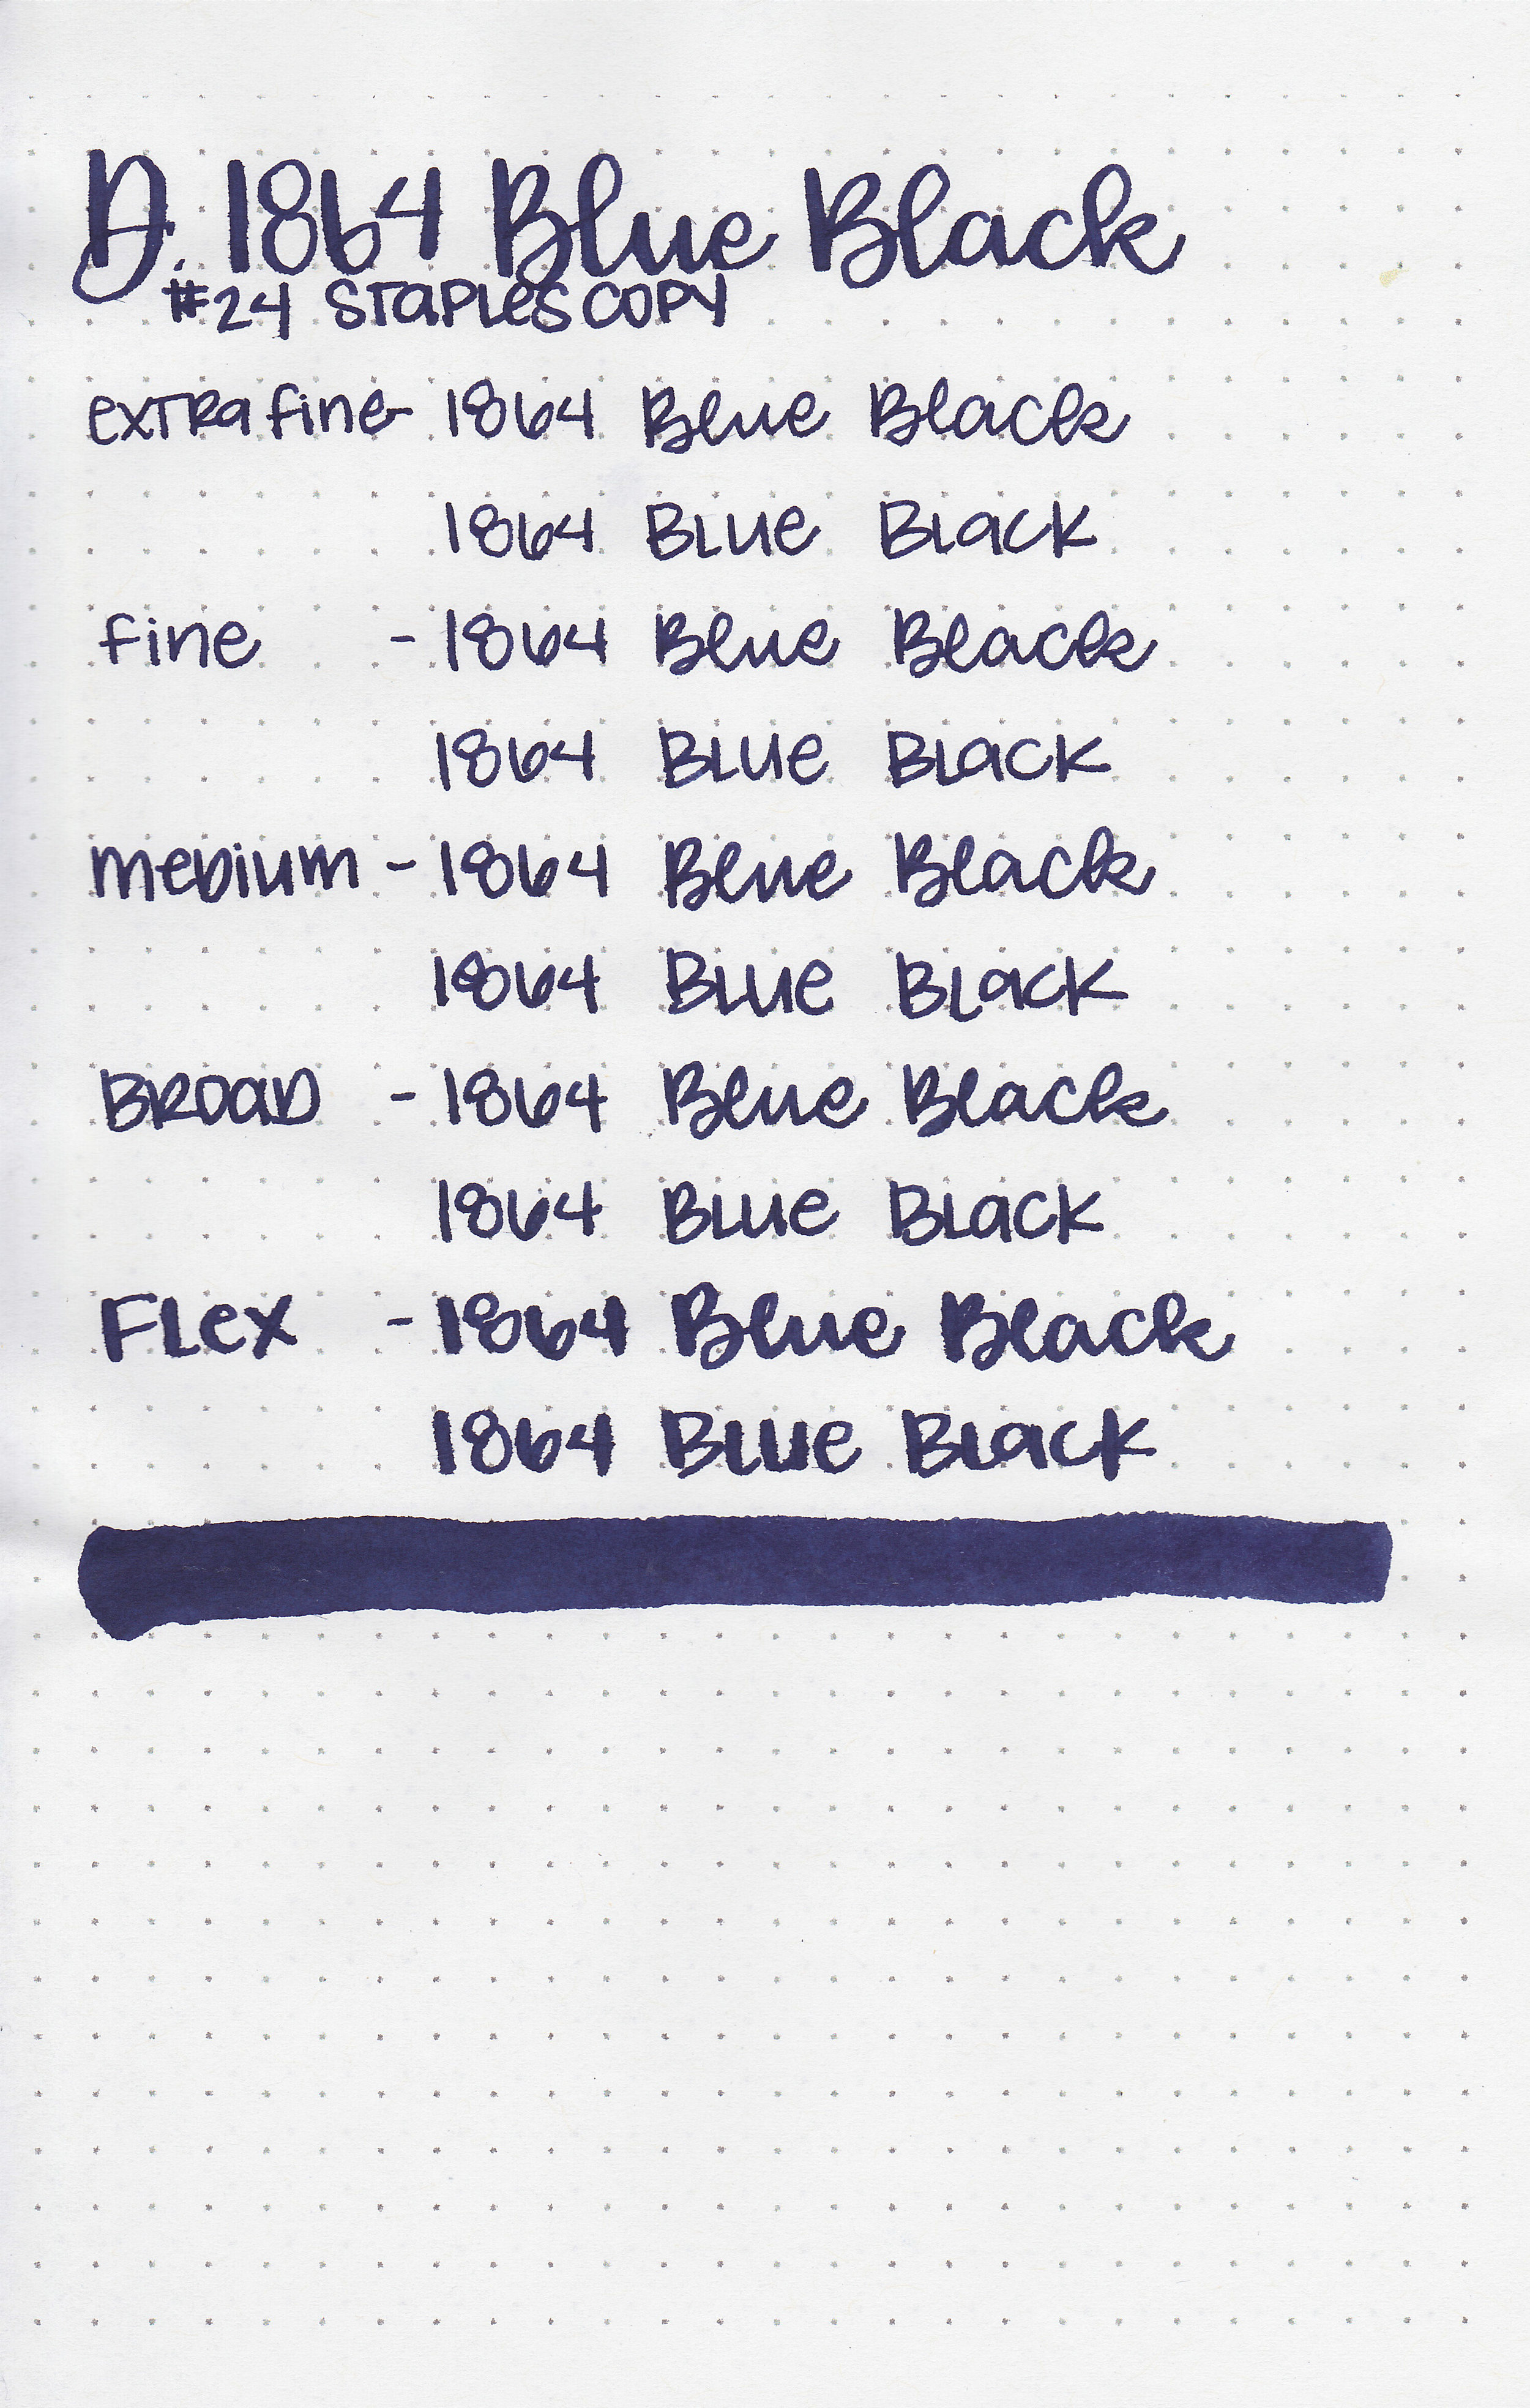 D. 1864 Blue Black
#24 STAPLES COPY
extra fine - 1864 Blue Black
1864 Blue Black
fine - 1864 Blue Black
1864 Blue Black
medium - 1864 Blue Black
1864 Blue Black
BROAD - 1864 Blue Black
1864 Blue Black
Flex - 1864 Blue Black
1864 Blue Black